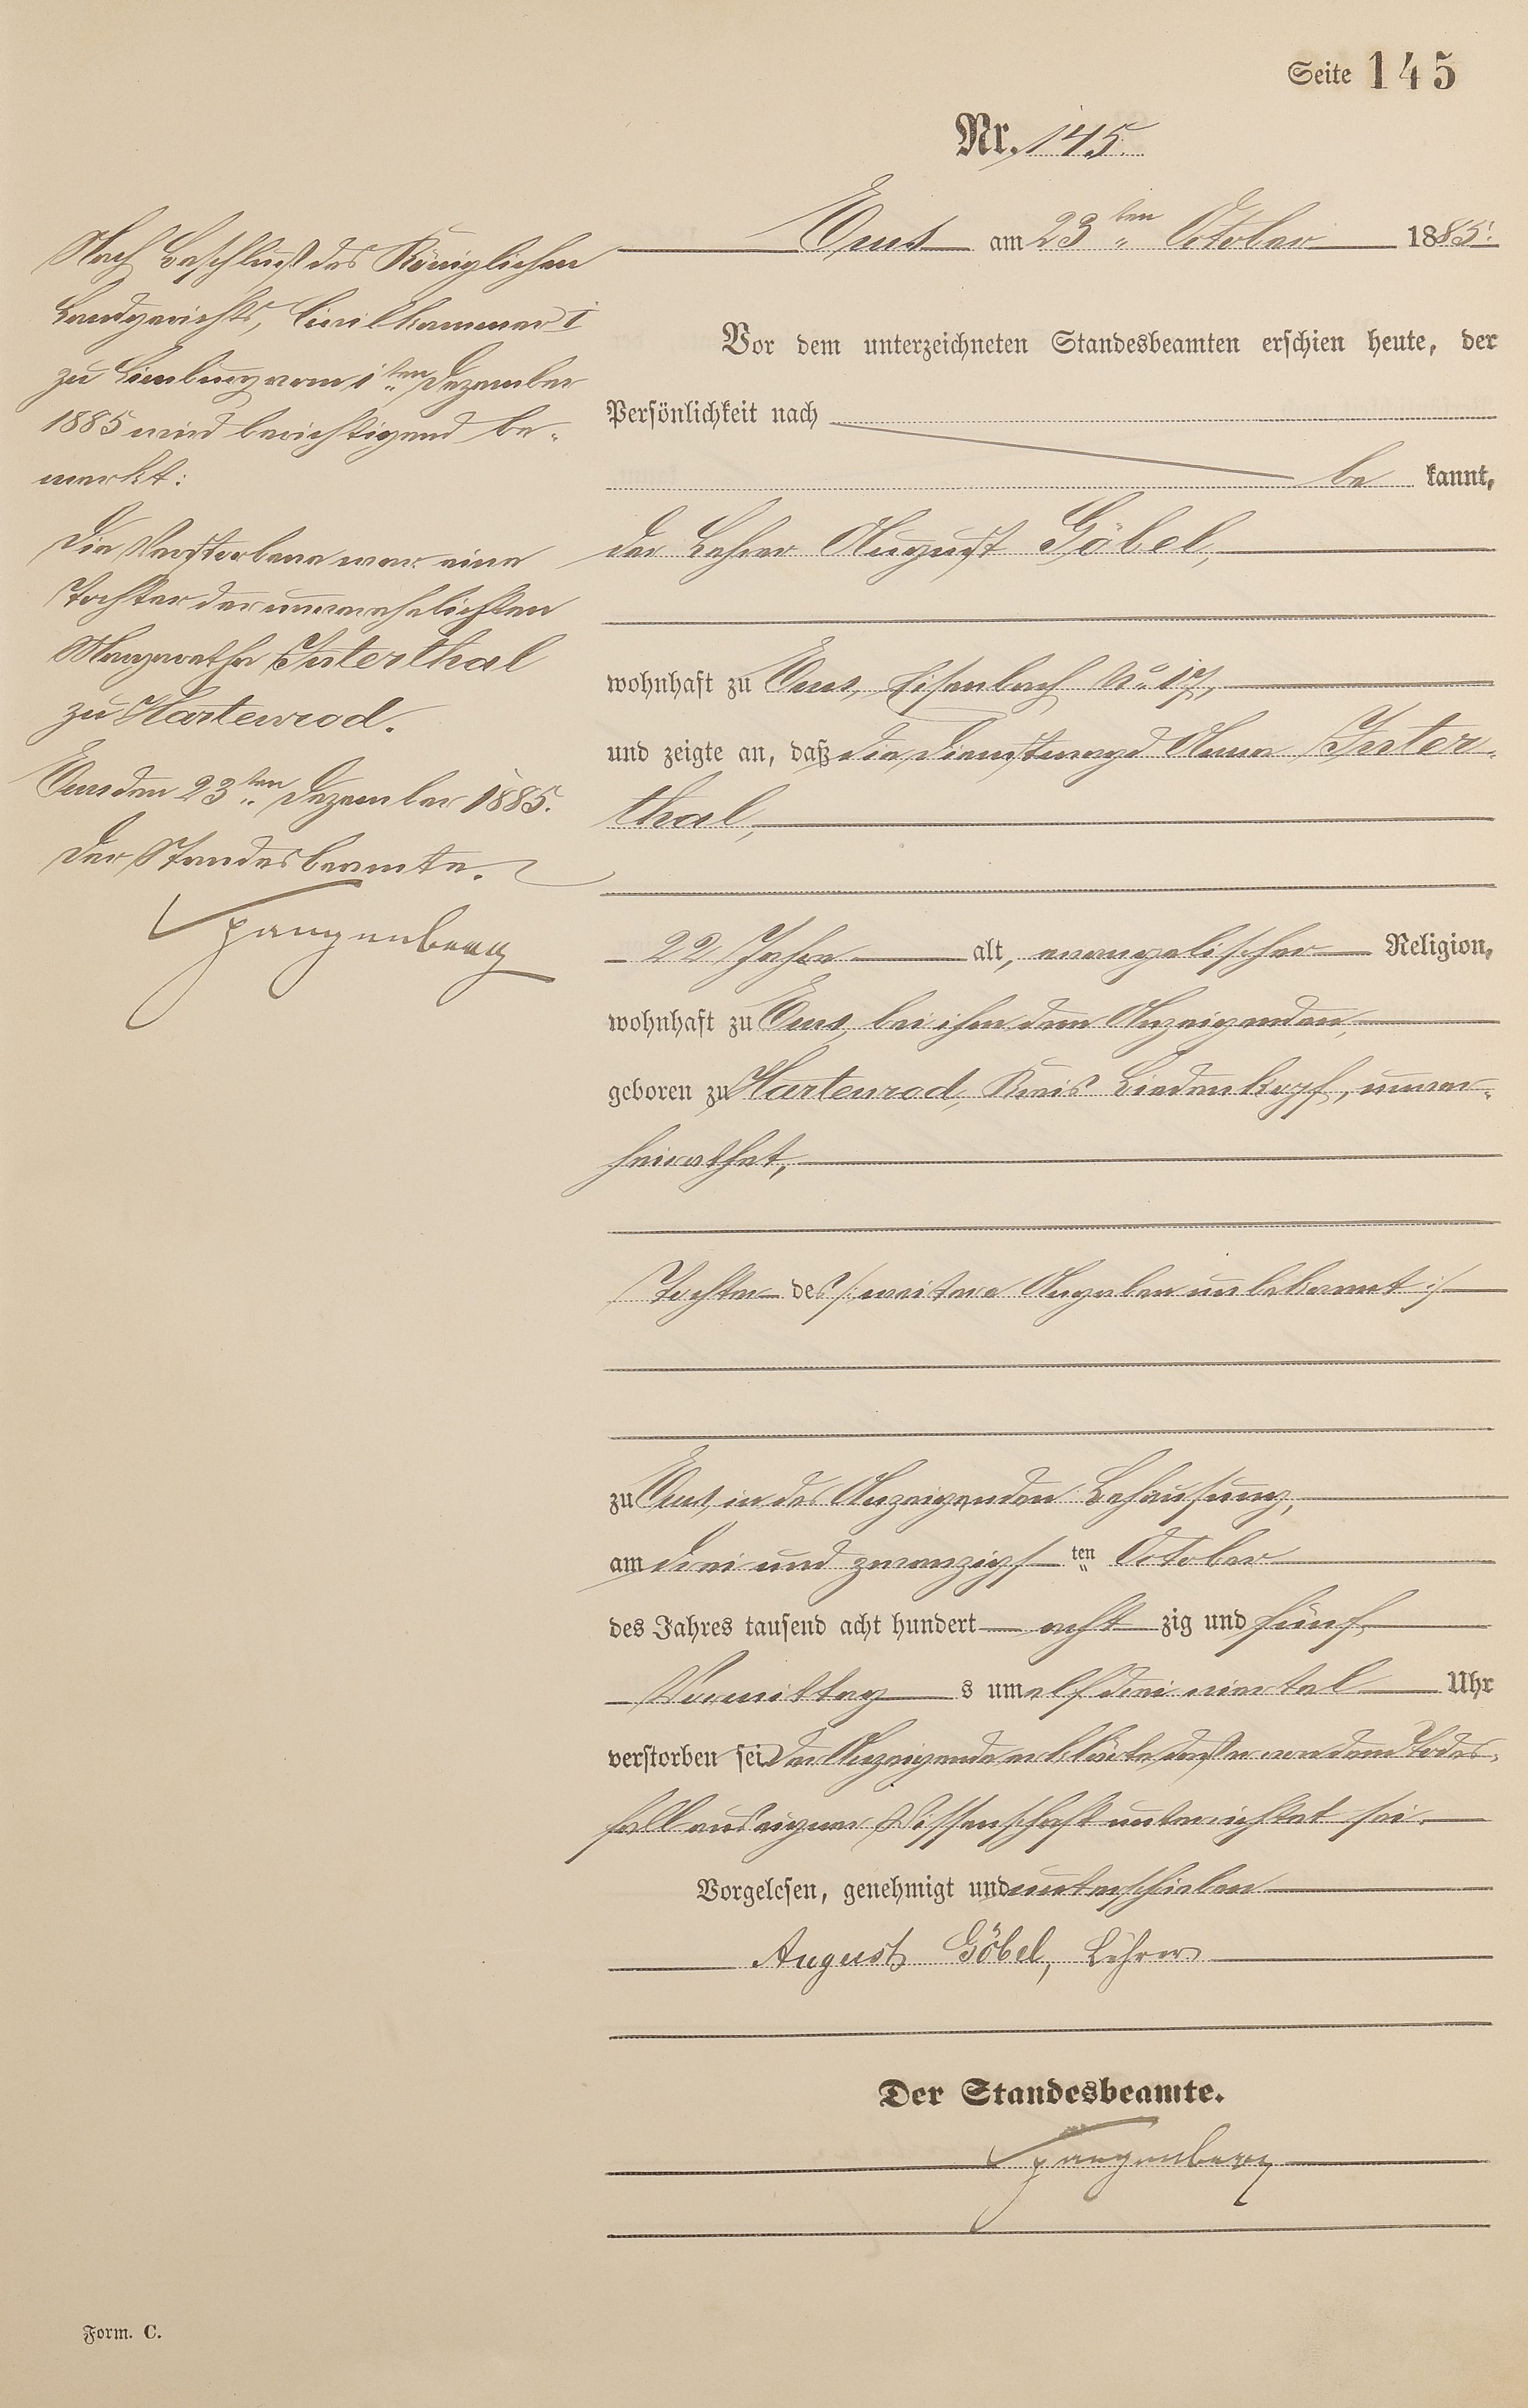 Seite 145
Nr. 145.
Ems am 23ten October 1885.
Vor dem unterzeichneten Standesbeamten erschien heute, der
Persönlichkeit nach
be kannt,
der Lehrer August Göbel,
wohnhaft zu Ems, Eisenbach No 17,
und zeigte an, daß die Dienstmagd Anna Inter-
thal,
22 Jahre alt, evangelischer Religion,
wohnhaft zu Ems, bei ihm dem Anzeigenden,
geboren zu Hartenrod, Kreis Biedenkopf, unver-
heirathet,
Tochter des /: weitere Angaben unbekannt :/
zu Ems, in des Anzeigenden Behausung,
am drei und zwanzigs ten October
des Jahres tausend acht hundert acht zig und fünf
Vormittag s um elf drei viertel Uhr
verstorben sei. Der Anzeigende erklärte daß er von dem Todes-
fall aus eigner Wissenschaft unterrichtet sei.
Vorgelesen, genehmigt und unterschrieben
August Göbel, Lehrer
Der Standesbeamte.
Spangenberg
Nach Beschluß des Königlichen
Landgerichts, Civilkammer I
zu Limburg vom 1ten Dezember
1885 wird berichtigend be-
merkt:
Die Verstorbene war eine
Tochter der unverehelichten
Margaretha Interthal
zu Hartenrod.
Ems den 23ten Dezember 1885.
Der Standesbeamte.
Spangenberg
Form. C.